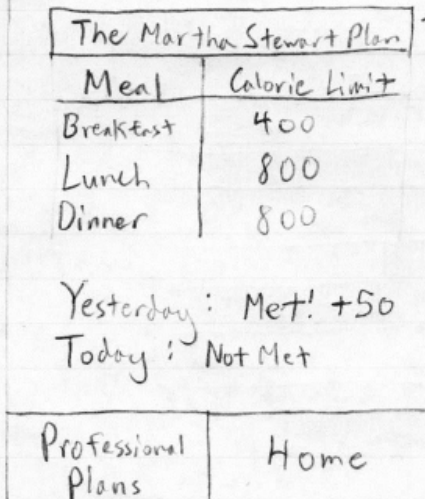 The Martha Stewart Plan
Meal Calorie Limit
Breakfast 400
Lunch 800
Dinner 800
Yesterday: Met! +50
Today: Not Met
Professional Home
Plans